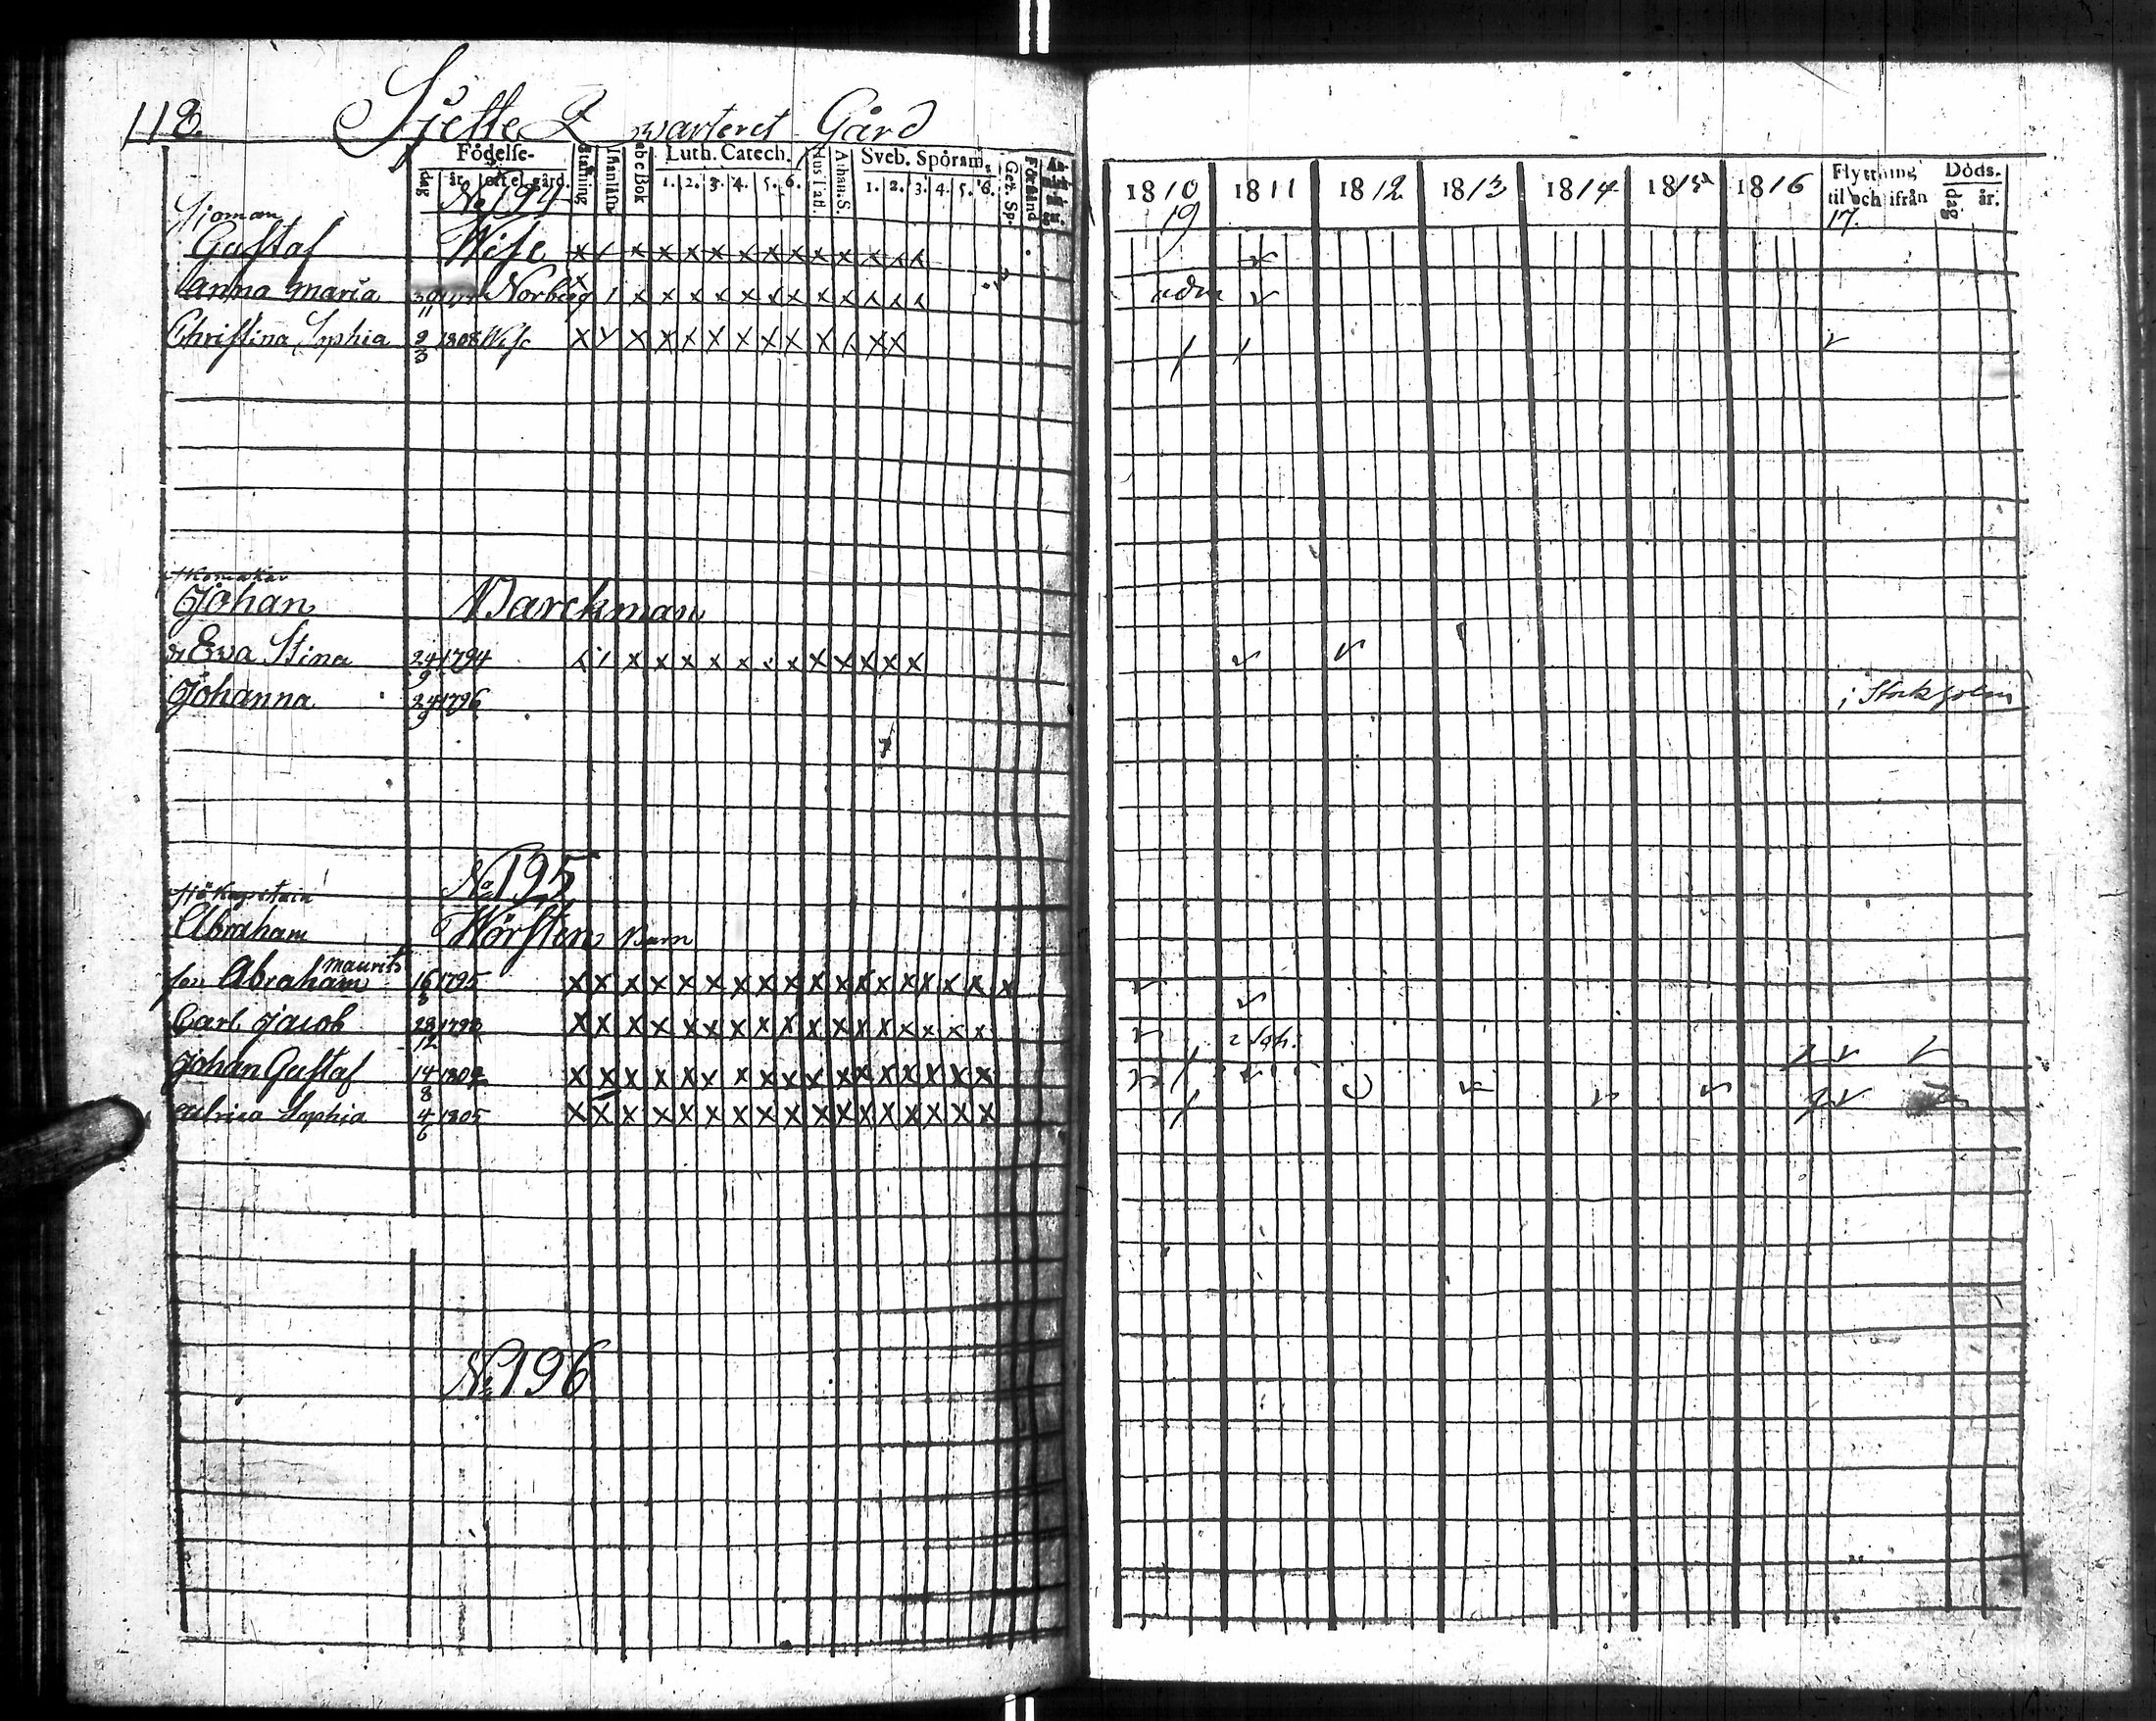 118. Sjette Qwarteret Gård
Födelse-
dag år. ort el. gård.
Stafning
Innanläsn
abcBok
Luth. Catech.
1. 2. 3. 4. 5. 6.
Hus Tafl.
Athan. S.
Sveb. Spörsm.
1. 2. 3. 4. 5. 6.
Gez. Sp.
Förstånd
No 194
Sjöman
Gustaf Wise
Anna Maria 30/11 Norberg
Christina Sophia 9/3 1808 Wise
skomakar
Johan Barckman
Ewa Stina 24/9 1794
Johanna 24/9 1796
No 195
Sjö Kapitain
Abraham Hörsten Barn
son Abraham Maurits 16/8 1795
Carl Jacob 28/12 1798
Johan Gustaf 14/8 1802
Sophia 4/6 1805
No 196
1810 1811 1812 1813 1814 1815 1816
19
Flyttning til och ifrån
17.
Döds-
dag år.
i Stockholm